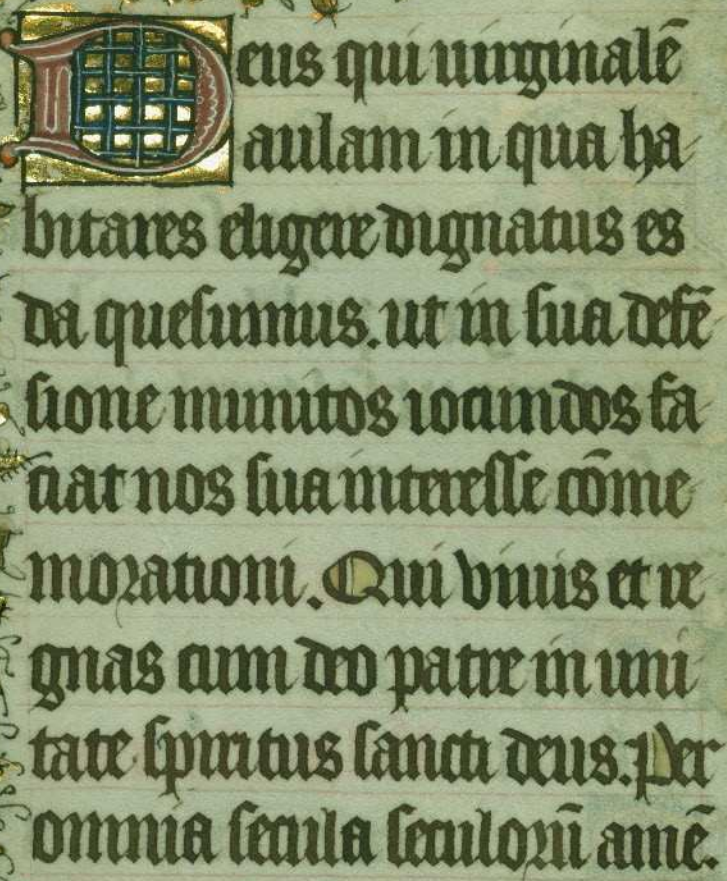 Deus qui uirginalē
aulam in qua ha
bitares eligere dignatus es
da quesumus. ut in sua defē
sione munitos iocundos fa
ciat nos sua interesse cōme
morationi. Qui viuis et re
gnas cum deo patre in uni
tate spiritus sancti deus. Per
omnia secula seculorū amē.